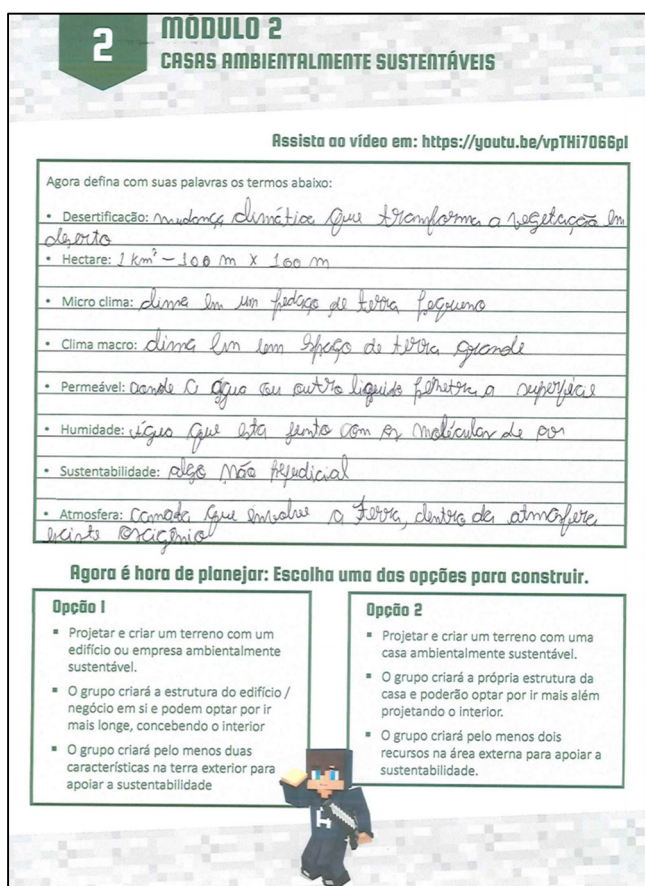 2
MÓDULO 2
CASAS AMBIENTALMENTE SUSTENTÁVEIS
Assista ao vídeo em: https://youtu.be/vpTHi7066pI
Agora defina com suas palavras os termos abaixo:
• Desertificação: mudança climática que transforma a vegetação em
deserto
• Hectare: 1 km² - 100 m x 100 m
• Micro clima: clima em um pedaço de terra pequeno
• Clima macro: clima em um espaço de terra grande
• Permeável: aonde a água ou outro liquido penetra a superfície
• Humidade: água que esta junto com as moliculas de
• Sustentabilidade: algo não prejudicial
• Atmosfera: camada que envolve a terra, dentro da atmosfera
existe oscigênio
Agora é hora de planejar: Escolha uma das opções para construir.
Opção I
▪ Projetar e criar um terreno com um
edifício ou empresa ambientalmente
sustentável.
▪ O grupo criará a estrutura do edifício /
negócio em si e podem optar por ir
mais longe, concebendo o interior
▪ O grupo criará pelo menos duas
características na terra exterior para
apoiar a sustentabilidade
Opção 2
▪ Projetar e criar um terreno com uma
casa ambientalmente sustentável.
▪ O grupo criará a própria estrutura da
casa e poderão optar por ir mais além
projetando o interior.
▪ O grupo criará pelo menos dois
recursos na área externa para apoiar a
sustentabilidade.